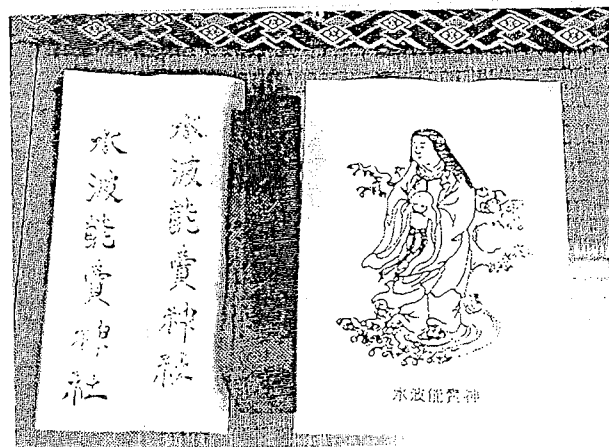 水波能賣神社
水波能賣神社
水波能賣神